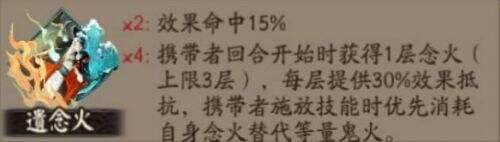 x2: 效果命中15%
x4: 携带者回合开始时获得1层念火(
上限3层),每层提供30%效果抵
抗,携带者施放技能时优先消耗
自身念火替代等量鬼火。
遗念火